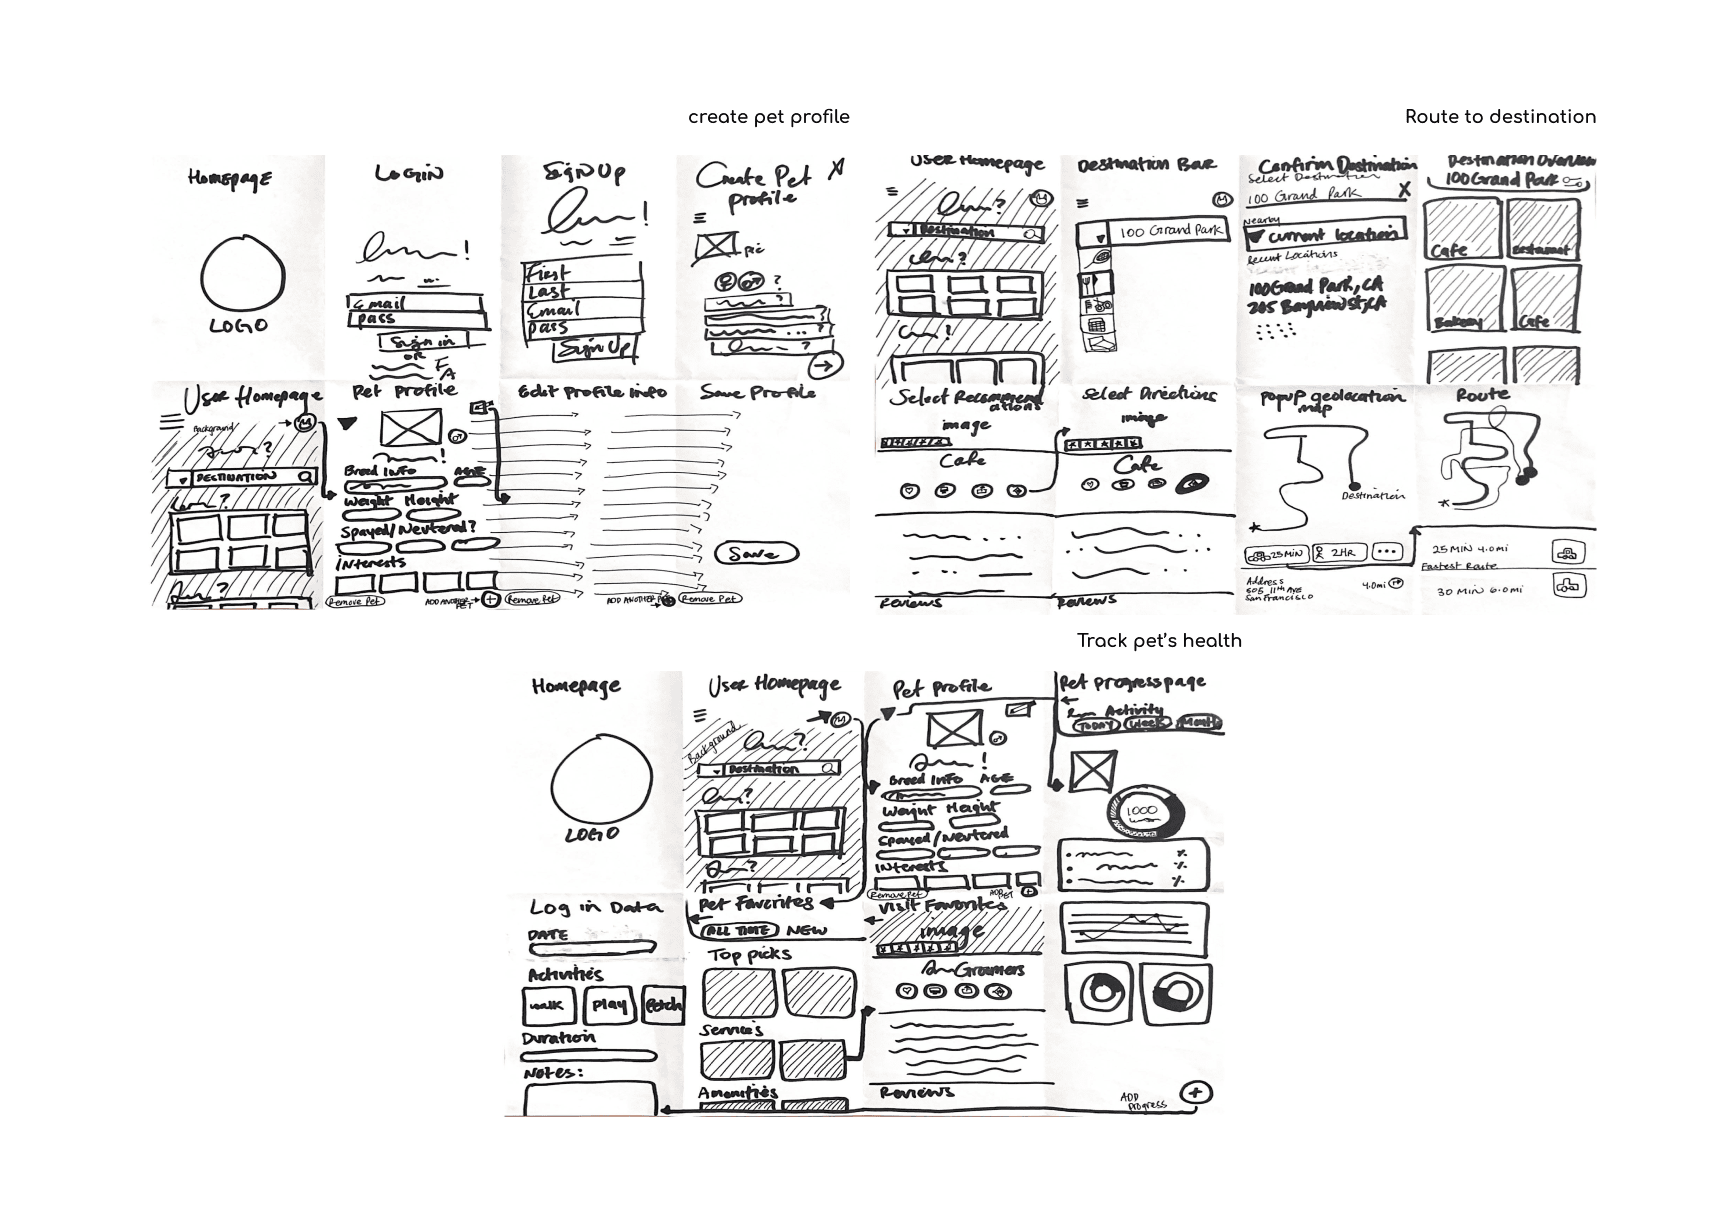 create pet profile
Homepage
LOGO
Login
!
Email
pass
Sign in
OR
Sign Up
!
First
Last
Email
pass
Sign Up
Create Pet
profile
X
pic
?
?
?
?
?
User Homepage
Background
M
?
DESTINATION
?
?
Pet Profile
!
Breed Info AGE
Weight Height
Spayed/Neutered?
Interests
Remove Pet
ADD ANOTHER
PET
+
Edit Profile Info
Remove Pet
ADD ANOTHER
Save Profile
Save
Remove Pet
Route to destination
User Homepage
M
?
Destination
?
?
Destination Bar
M
100 Grand Park
Confirm Destination
Select Destination
100 Grand Park X
Nearby
current location
Recent Locations
100 Grand Park, CA
205 Bayview St, CA
Destination Overview
100 Grand Park
Cafe
Restaurant
Bakery
Cafe
Select Recommend
ations
image
Cafe
Reviews
Select Directions
image
Cafe
Reviews
popup geolocation
map
Destination
25 MIN
2 HR
Address
505 11th AVE
San Francisco
4.0mi
Route
25 MIN 4.0mi
Fastest Route
30 MIN 6.0mi
Track pet's health
Homepage
LOGO
User Homepage
M
Background
?
Destination
?
?
Pet Profile
!
Breed Info AGE
Weight Height
Spayed/Neutered
Interests
Remove Pet
ADD
PET
+
Pet progress page
Activity
TODAY
Week
Month
1000
%
%
%
ADD
progress
+
Log in Data
DATE
Activities
walk
play
fetch
Duration
Notes:
Pet Favorites
ALL TIME NEW
Top picks
Services
Amenities
Visit Favorites
image
Groomers
Reviews